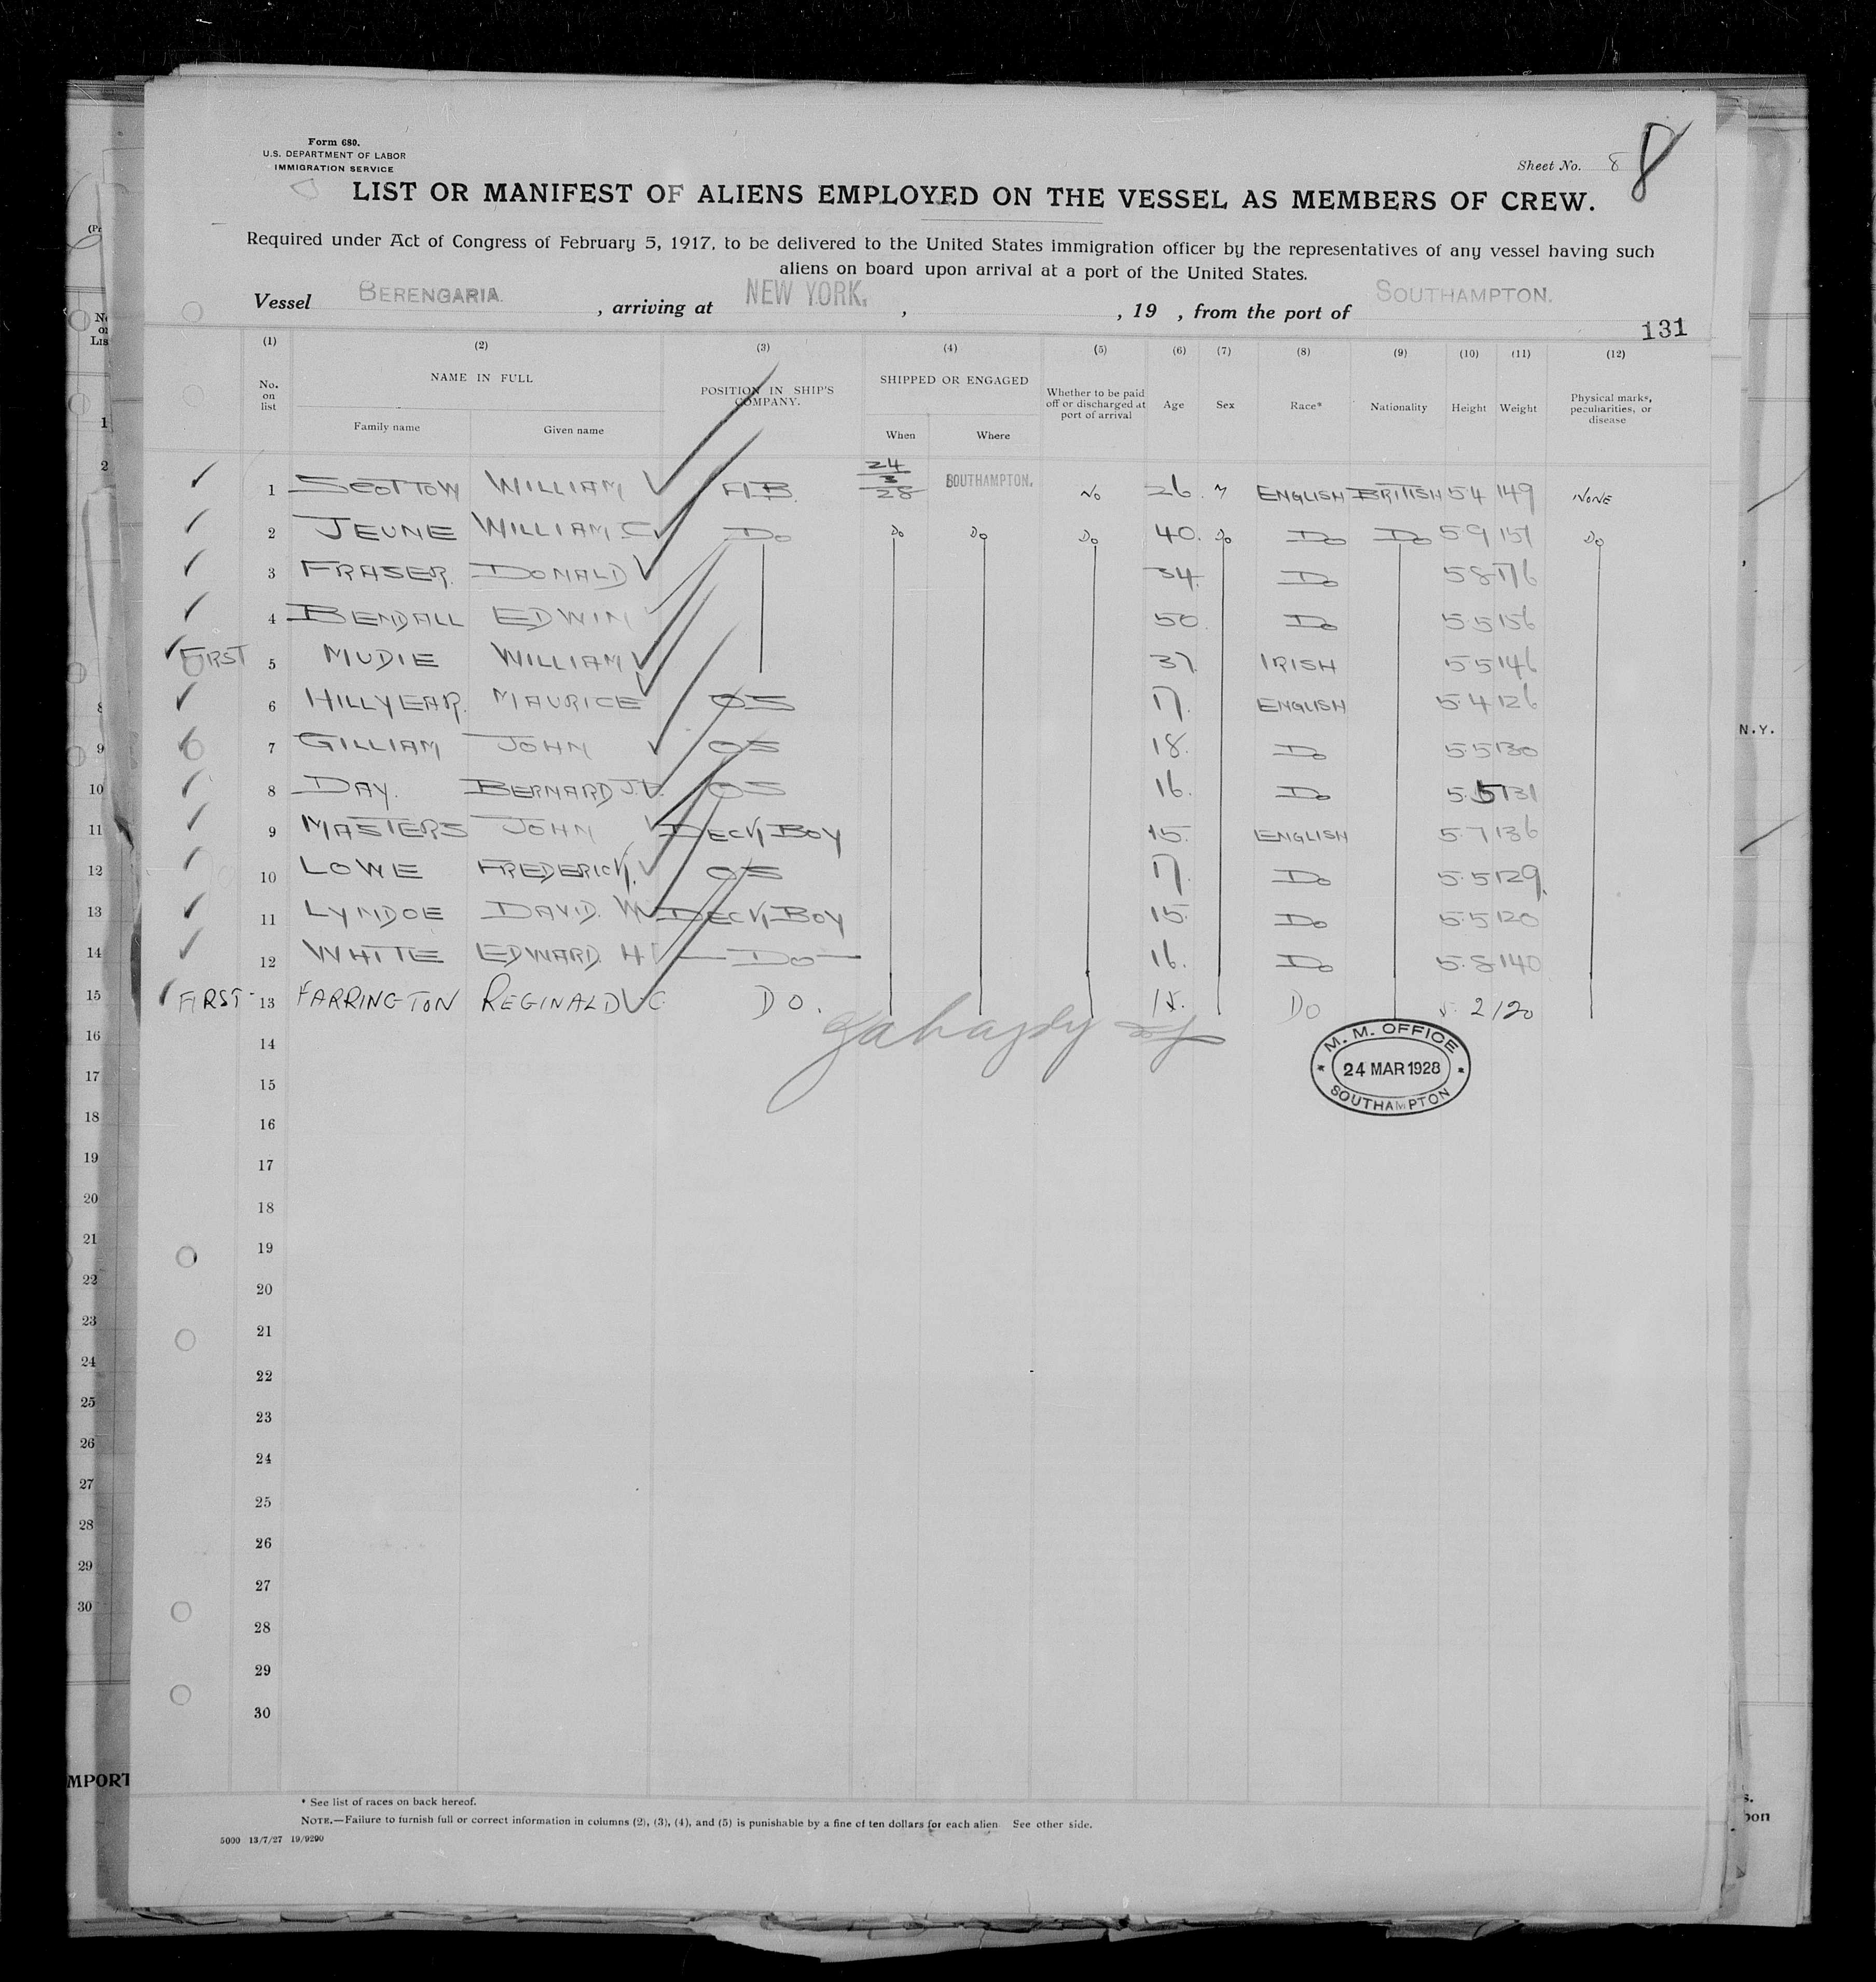 Form 680.
U.S. DEPARTMENT OF LABOR
IMMIGRATION SERVICE
Sheet No. 8 8
LIST OR MANIFEST OF ALIENS EMPLOYED ON THE VESSEL AS MEMBERS OF CREW.
Required under Act of Congress of February 5, 1917, to be delivered to the United States immigration officer by the representatives of any vessel having such
aliens on board upon arrival at a port of the United States.
Vessel BERENGARIA. , arriving at NEW YORK, , , 19 , from the port of SOUTHAMPTON.
131
(1) (2) (3) (4) (5) (6) (7) (8) (9) (10) (11) (12)
No. on list NAME IN FULL Family name Given name POSITION IN SHIP'S COMPANY. SHIPPED OR ENGAGED When Where Whether to be paid off or discharged at port of arrival Age Sex Race* Nationality Height Weight Physical marks, peculiarities, or disease
1 SCOTTOW WILLIAM AB. 24 3 28 SOUTHAMPTON. No 26. M ENGLISH BRITISH 5.4 149 NONE
2 JEUNE WILLIAM C Do Do Do Do 40. Do Do Do 5.9 151 Do
3 FRASER. DONALD 34. Do 5.8 176
4 BENDALL EDWIN 50. Do 5.5 156
FIRST 5 MUDIE WILLIAM 37. IRISH 5.5 146
6 HILLYEAR. MAURICE OS 17. ENGLISH 5.4 126
7 GILLIAM JOHN OS 18. Do 5.5 130
8 DAY. BERNARD J. OS 16. Do 5.5 131
9 MASTERS JOHN DECK BOY 15. ENGLISH 5.7 136
10 LOWE FREDERICK. OS 17. Do 5.5 129.
11 LYNDOE DAVID. W DECK BOY 15. Do 5.5 120
12 WHITE EDWARD. H — Do — 16. Do 5.8 140
FIRST - 13 FARRINGTON REGINALD C DO. 15. DO 5. 2 120
14
M. M. OFFICE
24 MAR 1928
SOUTHAMPTON
15
16
17
18
19
20
21
22
23
24
25
26
27
28
29
30
* See list of races on back hereof.
NOTE.—Failure to furnish full or correct information in columns (2), (3), (4), and (5) is punishable by a fine of ten dollars for each alien See other side.
5000 13/7/27 19/9290
N.Y.